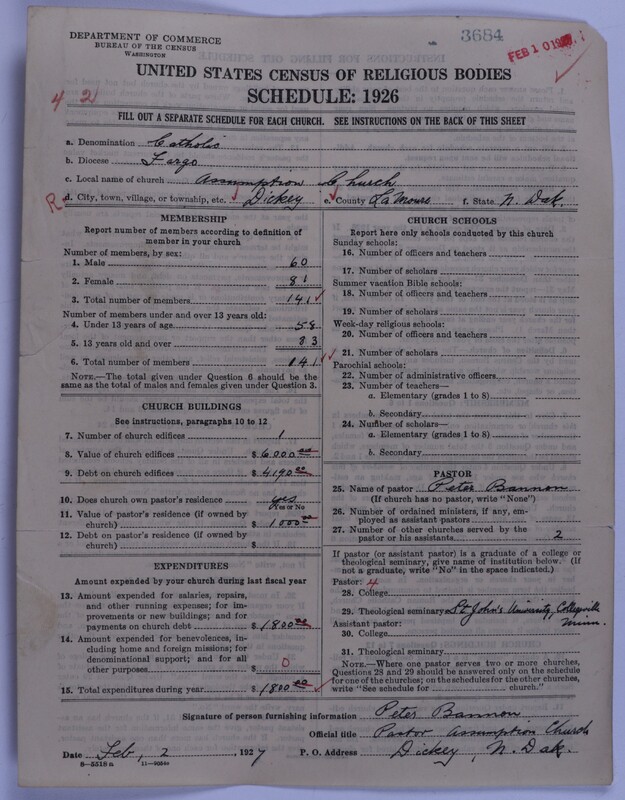 DEPARTMENT OF COMMERCE
BUREAU OF THE CENSUS
WASHINGTON
3684
FEB 10 1927
UNITED STATES CENSUS OF RELIGIOUS BODIES
SCHEDULE: 1926
4 2
FILL OUT A SEPARATE SCHEDULE FOR EACH CHURCH. SEE INSTRUCTIONS ON THE BACK OF THIS SHEET
a. Denomination Catholic
b. Diocese Fargo
c. Local name of church Assumption Church
R d. City, town, village, or township, etc. Dickey e. County LaMoure f. State N. Dak.
MEMBERSHIP
Report number of members according to definition of
member in your church
Number of members, by sex:
1. Male 60
2. Female 81
3. Total number of members 141
Number of members under and over 13 years old:
4. Under 13 years of age 58
5. 13 years old and over 83
6. Total number of members 141
NOTE.—The total given under Question 6 should be the
same as the total of males and females given under Question 3.
CHURCH BUILDINGS
See instructions, paragraphs 10 to 12
7. Number of church edifices 1
8. Value of church edifices $ 6000 00
9. Debt on church edifices $ 4190 00
10. Does church own pastor's residence yes
Yes or No
11. Value of pastor's residence (if owned by
church) $ 1000 00
12. Debt on pastor's residence (if owned by
church) $
EXPENDITURES
Amount expended by your church during last fiscal year
13. Amount expended for salaries, repairs,
and other running expenses; for im-
provements or new buildings; and for
payments on church debt $ 1800 00
14. Amount expended for benevolences, in-
cluding home and foreign missions; for
denominational support; and for all
other purposes $ 0
15. Total expenditures during year $ 1800 00
CHURCH SCHOOLS
Report here only schools conducted by this church
Sunday schools:
16. Number of officers and teachers
17. Number of scholars
Summer vacation Bible schools:
18. Number of officers and teachers
19. Number of scholars
Week-day religious schools:
20. Number of officers and teachers
21. Number of scholars
Parochial schools:
22. Number of administrative officers
23. Number of teachers—
a. Elementary (grades 1 to 8)
b. Secondary
24. Number of scholars—
a. Elementary (grades 1 to 8)
b. Secondary
PASTOR
25. Name of pastor Peter Bannon
(If church has no pastor, write "None")
26. Number of ordained ministers, if any, em-
ployed as assistant pastors
27. Number of other churches served by the
pastor or his assistants 2
If pastor (or assistant pastor) is a graduate of a college or
theological seminary, give name of institution below. (If
not a graduate, write "No" in the space indicated.)
Pastor: 4
28. College
29. Theological seminary St John's University, Collegeville
Minn.
Assistant pastor:
30. College
31. Theological seminary
NOTE.—Where one pastor serves two or more churches,
Questions 28 and 29 should be answered only on the schedule
for one of the churches; on the schedules for the other churches,
write "See schedule for church."
Signature of person furnishing information Peter Bannon
Official title Pastor Assumption Church
Date Feb, 2, 1927 P. O. Address Dickey, N. Dak.